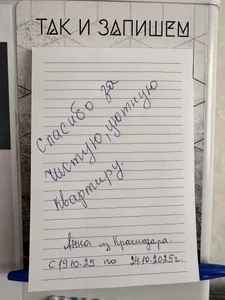 ТАК И ЗАПИШЕМ
Спасибо за
чистую, уютную
квартиру.
Анна из Краснодара.
с 19.10.25 по 24.10.2025г.